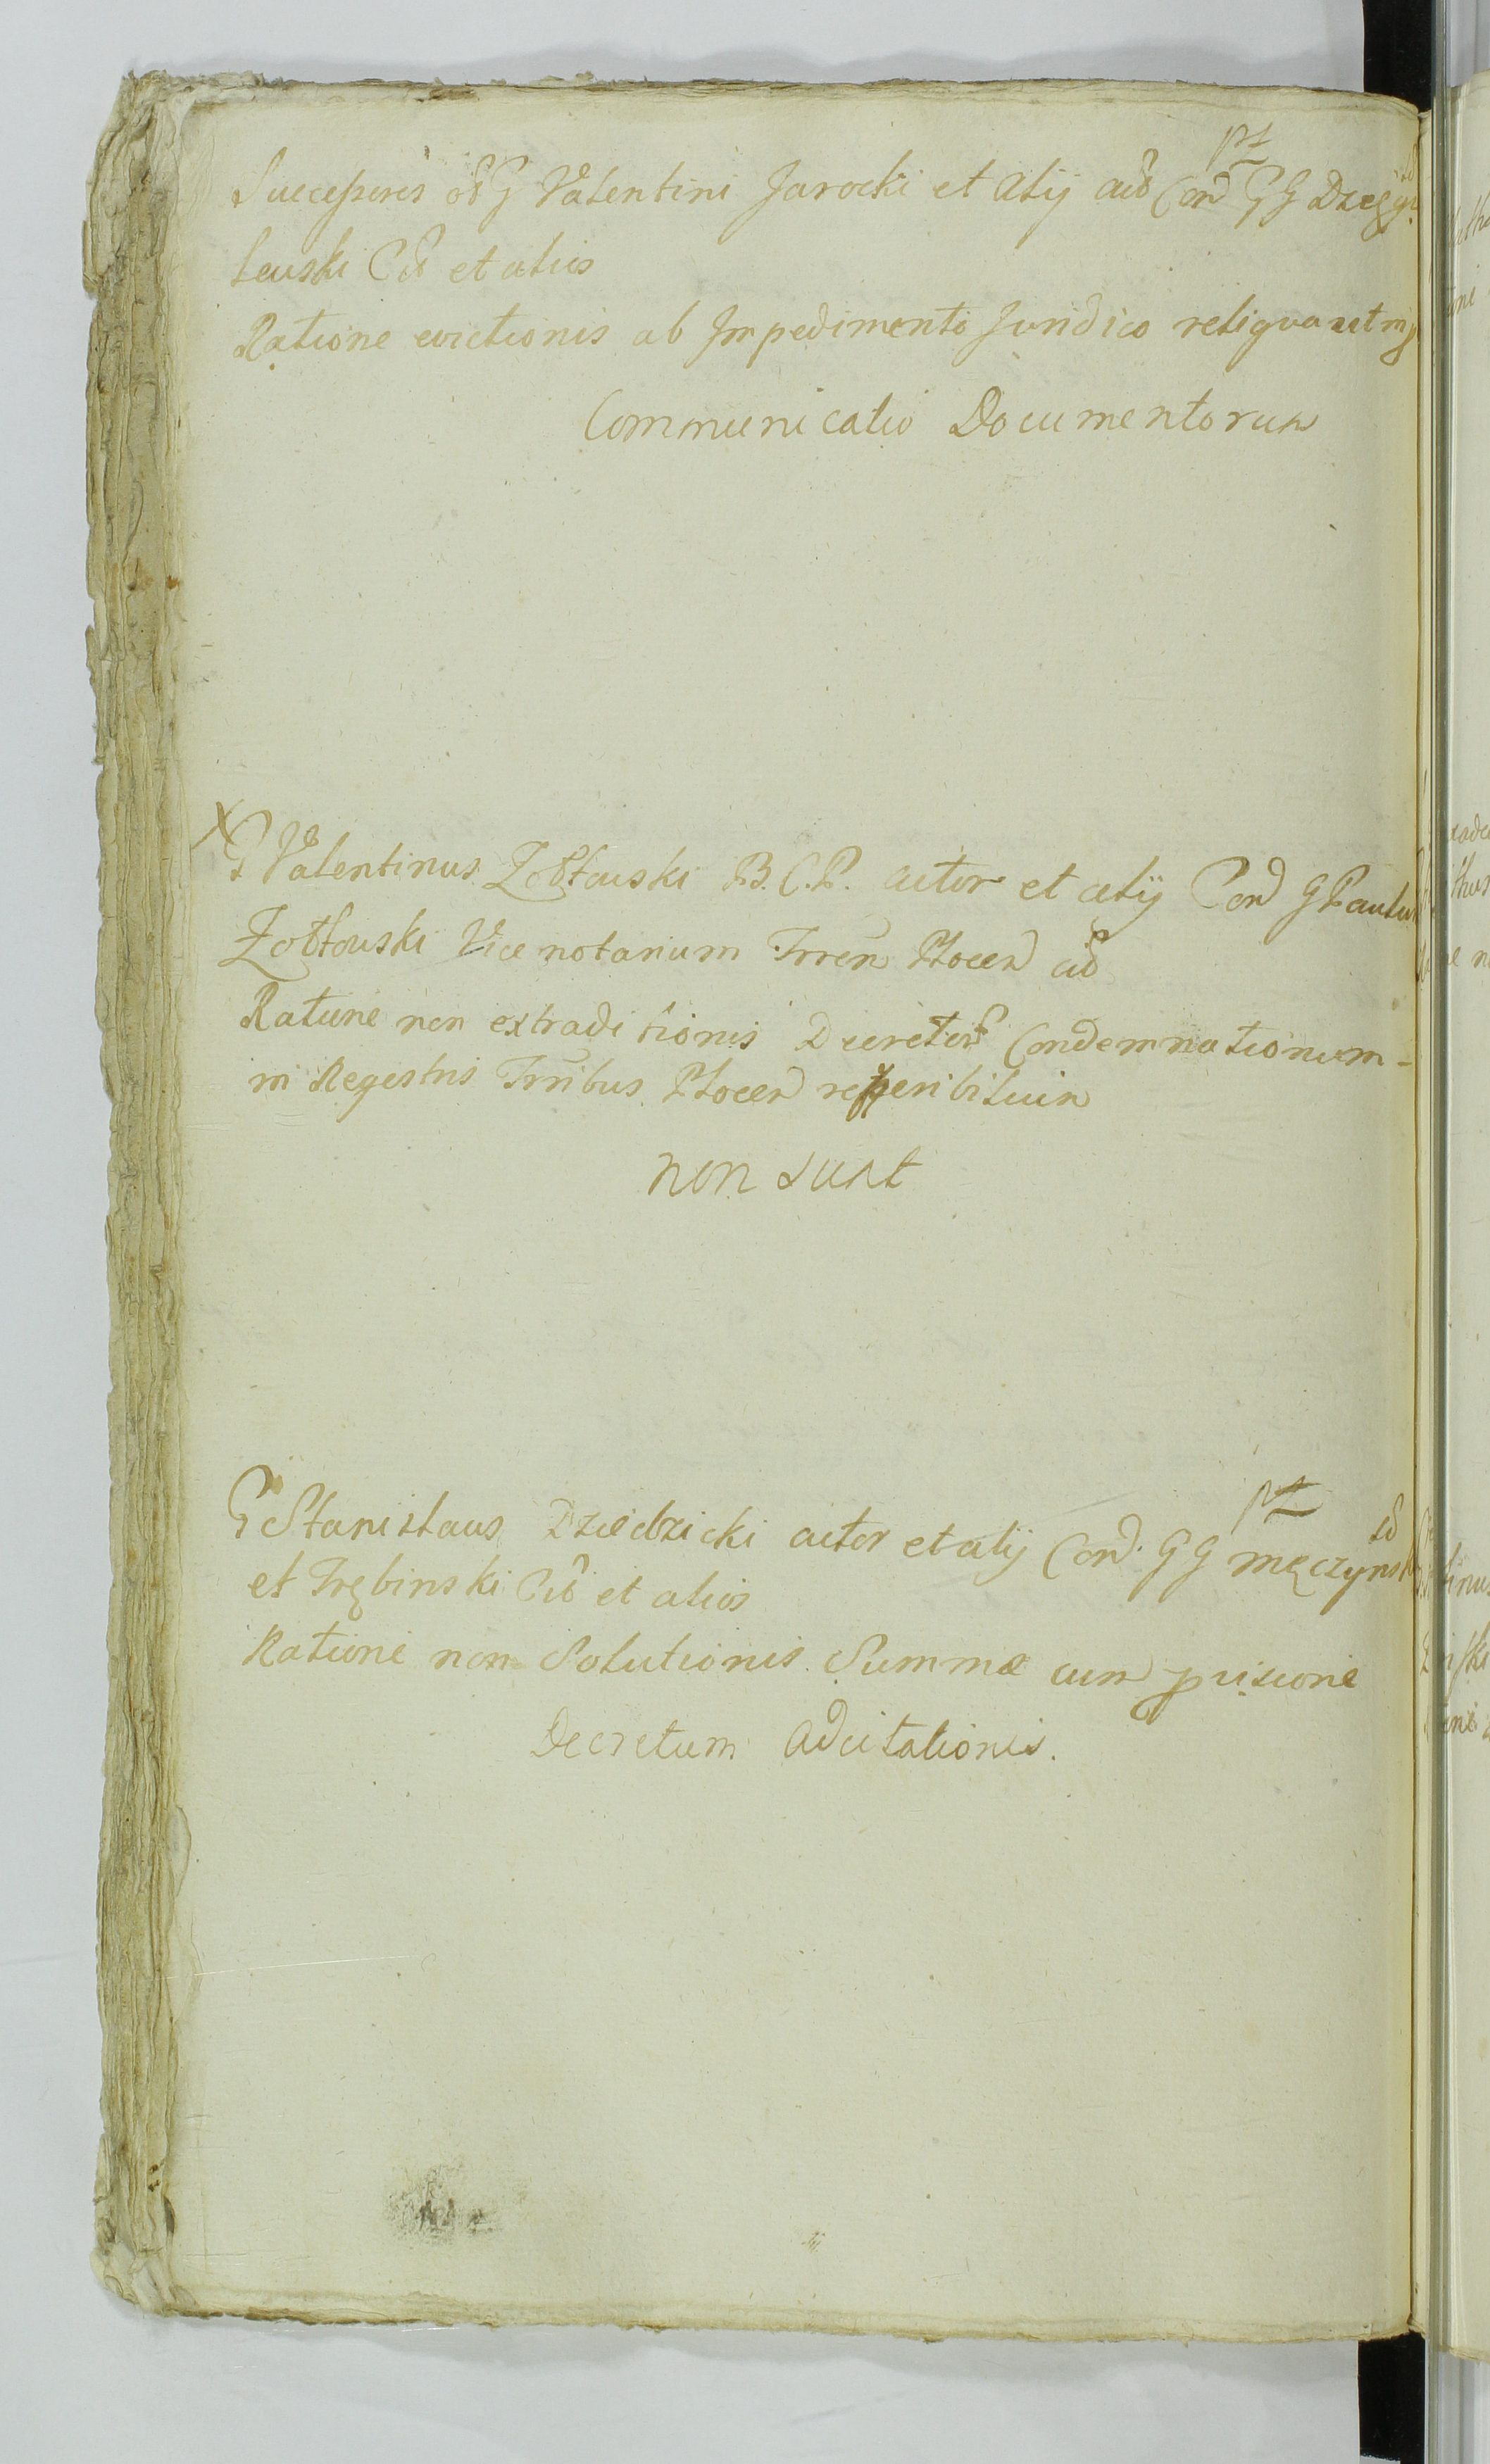 pt
Successores oł G Valentini Jarocki et alij actõ Con̄d G G Dzegi
lewski Ctõ et alios
Ratione evictionis ab Impedimento Juridico reliqua ut in
Communicatio Documentorum
X
G Valentinus Żółtowski B. C. P. actor et alij Con̄d G Paulum
Żółtowski Vice notarium Trren Plocen ctõ
Ratione non extraditionis Decretor Condemnationum
in Regestris Trribus Plocen reperibilium
non sunt
pt
G Stanislaus Dziedzicki actor et alij Con̄d. G G Męczynski
et Trębinski Ctõ et alios
Ratione non Solutionis Summæ cum
Decretum Adcitationis.